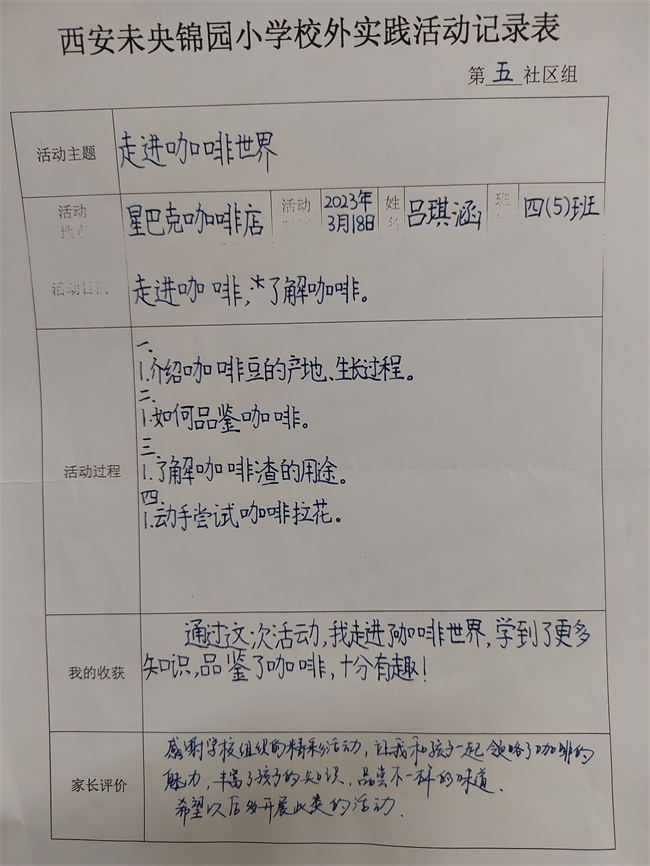 西安未央锦园小学校外实践活动记录表
第 五 社区组
活动主题 走进咖啡世界
活动 星巴克咖啡店 活动 2023年3月18日 姓 吕琪涵 班 四(5)班
活动目的 走进咖啡,了解咖啡。
活动过程
一、
1.介绍咖啡豆的产地、生长过程。
二、
1.如何品鉴咖啡。
三、
1.了解咖啡渣的用途。
四、
1.动手尝试咖啡拉花。
我的收获
通过这次活动,我走进了咖啡世界,学到了更多
知识,品鉴了咖啡,十分有趣!
家长评价
感谢学校组织的精彩活动,让我和孩子一起领略了咖啡的
魅力,丰富了孩子的知识,品尝不一样的味道.
希望以后多开展此类的活动.